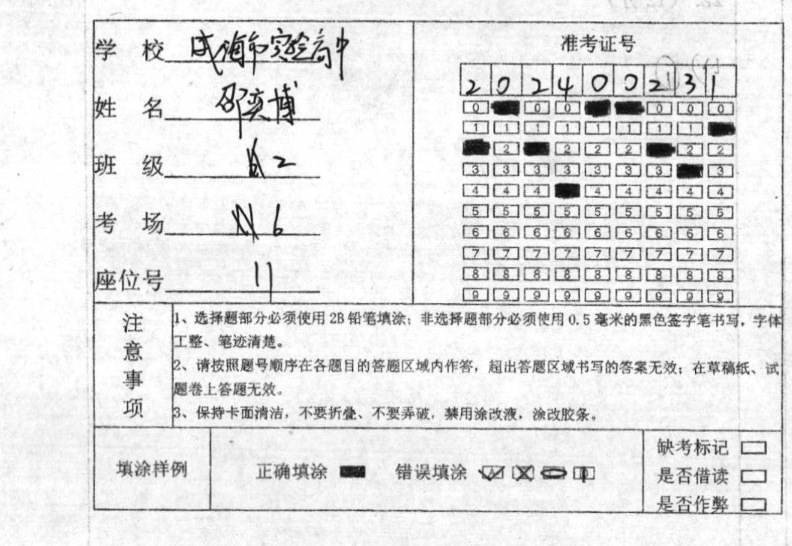 学 校 威海市实验高中
准考证号
2 0 2 4 0 0 2 3 1
姓 名 邵奕博
班 级 2
考 场 6
座位号 11
0 0 0 0 0
1 1 1 1 1 1 1 1
2 2 2 2 2 2
3 3 3 3 3 3 3 3
4 4 4 4 4 4 4 4
5 5 5 5 5 5 5 5 5
6 6 6 6 6 6 6 6 6
7 7 7 7 7 7 7 7 7
8 8 8 8 8 8 8 8 8
9 9 9 9 9 9 9 9 9
注意事项
1、选择题部分必须使用 2B 铅笔填涂；非选择题部分必须使用 0.5 毫米的黑色签字笔书写，字体
工整、笔迹清楚。
2、请按照题号顺序在各题目的答题区域内作答，超出答题区域书写的答案无效；在草稿纸、试
题卷上答题无效。
3、保持卡面清洁，不要折叠、不要弄破，禁用涂改液，涂改胶条。
填涂样例 正确填涂 错误填涂
缺考标记
是否借读
是否作弊